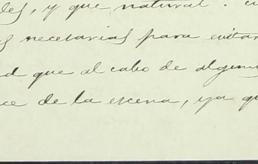 les, y que natural.
s necesarias para evitar
d que al cabo de algun
ce de la escena, ya qu